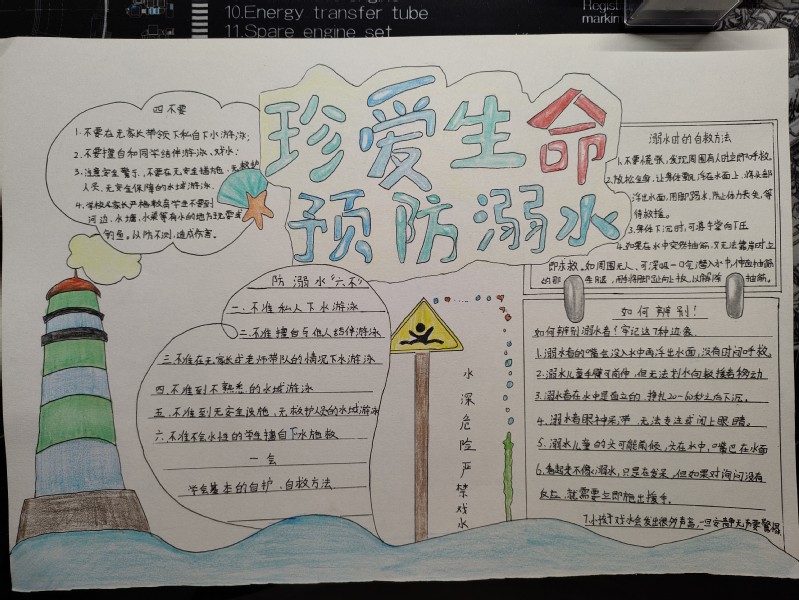 10.Energy transfer tube
11.Spare engine set
Regist
markin
珍爱生命
预防溺水
四不要
1.不要在无家长带领下私自下水游泳;
2.不要擅自和同学结伴游泳、戏水;
3.注意安全警示,不要在无安全措施、无救护
人员、无安全保障的水域游泳.
4.学校及家长严格教育学生不要到
河边、水塘、水渠等有水的地方玩耍或
钓鱼。以防不测,造成伤害。
防溺水“六不”
一、不准私人下水游泳
二、不准擅自与他人结伴游泳
三、不准在无家长或老师带队的情况下水游泳
四、不准到不熟悉的水域游泳
五、不准到无安全设施、无救护人员的水域游泳
六、不准不会水性的学生擅自下水施救
一会
学会基本的自护、自救方法
水深危险严禁戏水
溺水时的自救方法
1.不要慌张,发现周围有人时立即呼救.
2.放松全身,让身体飘浮在水面上,将头部
浮出水面,用脚踢水,防止体力丧失,等
待救援。
3.身体下沉时,可将手掌向下压
4.如果在水中突然抽筋,又无法靠岸时,立
即求救。如周围无人,可深吸一口气潜入水中,伸直抽筋
的那条腿,用手将脚趾向上扳,以解除抽筋。
如何辨别!
如何辨别溺水者?牢记这7种迹象
1.溺水者的嘴会没入水中再浮出水面,没有时间呼救.
2.溺水儿童手臂可前伸,但无法划水向救援者移动
3.溺水者在水中是直立的,挣扎20-60秒之后下沉.
4.溺水者眼神呆滞,无法专注或闭上眼睛.
5.溺水儿童的头可能前倾,头在水中,嘴巴在水面
6.看起来不像溺水,只是在发呆,但如果对询问没有
反应,就需要立即施出援手.
7.小孩子戏水会发出很多声音,一旦安静无声要警惕